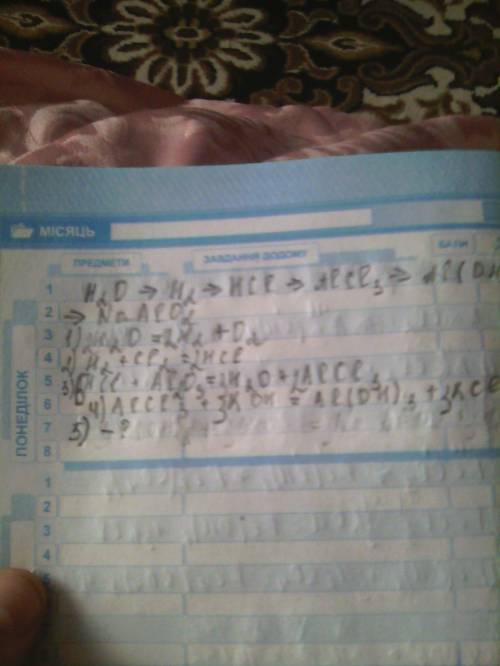 МІСЯЦЬ
ПРЕДМЕТИ ЗАВДАННЯ ДОДОМУ БАЛИ
ПОНЕДІЛОК
1 H2O → H2 → HCl → AlCl3 → Al(OH
2 → NaAlO2
3 1) 2H2O = 2H2 + O2
4 2) H2 + Cl2 = 2HCl
5 3) 6HCl + Al2O3 = 3H2O + 2AlCl3
6 4) AlCl3 + 3KOH = Al(OH)3 + 3KCl
7 5) - ?
8
1
2
3
4